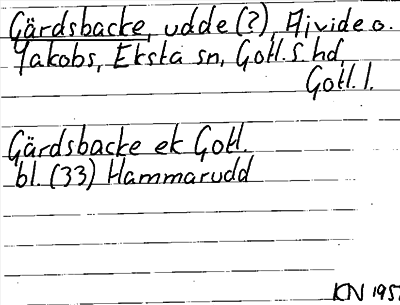 Gärdsbacke, udde (?), Ajvide o.
Jakobs, Eksta sn, Gotl. S. hd,
Gotl. l.
Gärdsbacke ek Gotl.
bl. (33) Hammarudd
KN